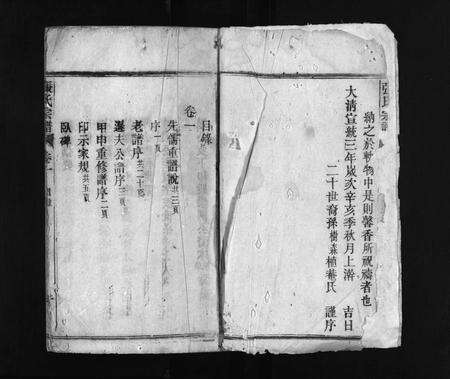 張氏宗譜
納之於軌物中是則馨香所祝禱者也
大清宣統三年歲次辛亥季秋月上澣 吉日
二十世裔孫樹森植菴氏 謹序
目錄
卷一
先儒重譜說共三頁
序一頁
老譜序共二十頁
遜夫公譜序二頁
甲申重修譜序二頁
印示家規共五頁
臥碑
張氏宗譜 卷一 目錄